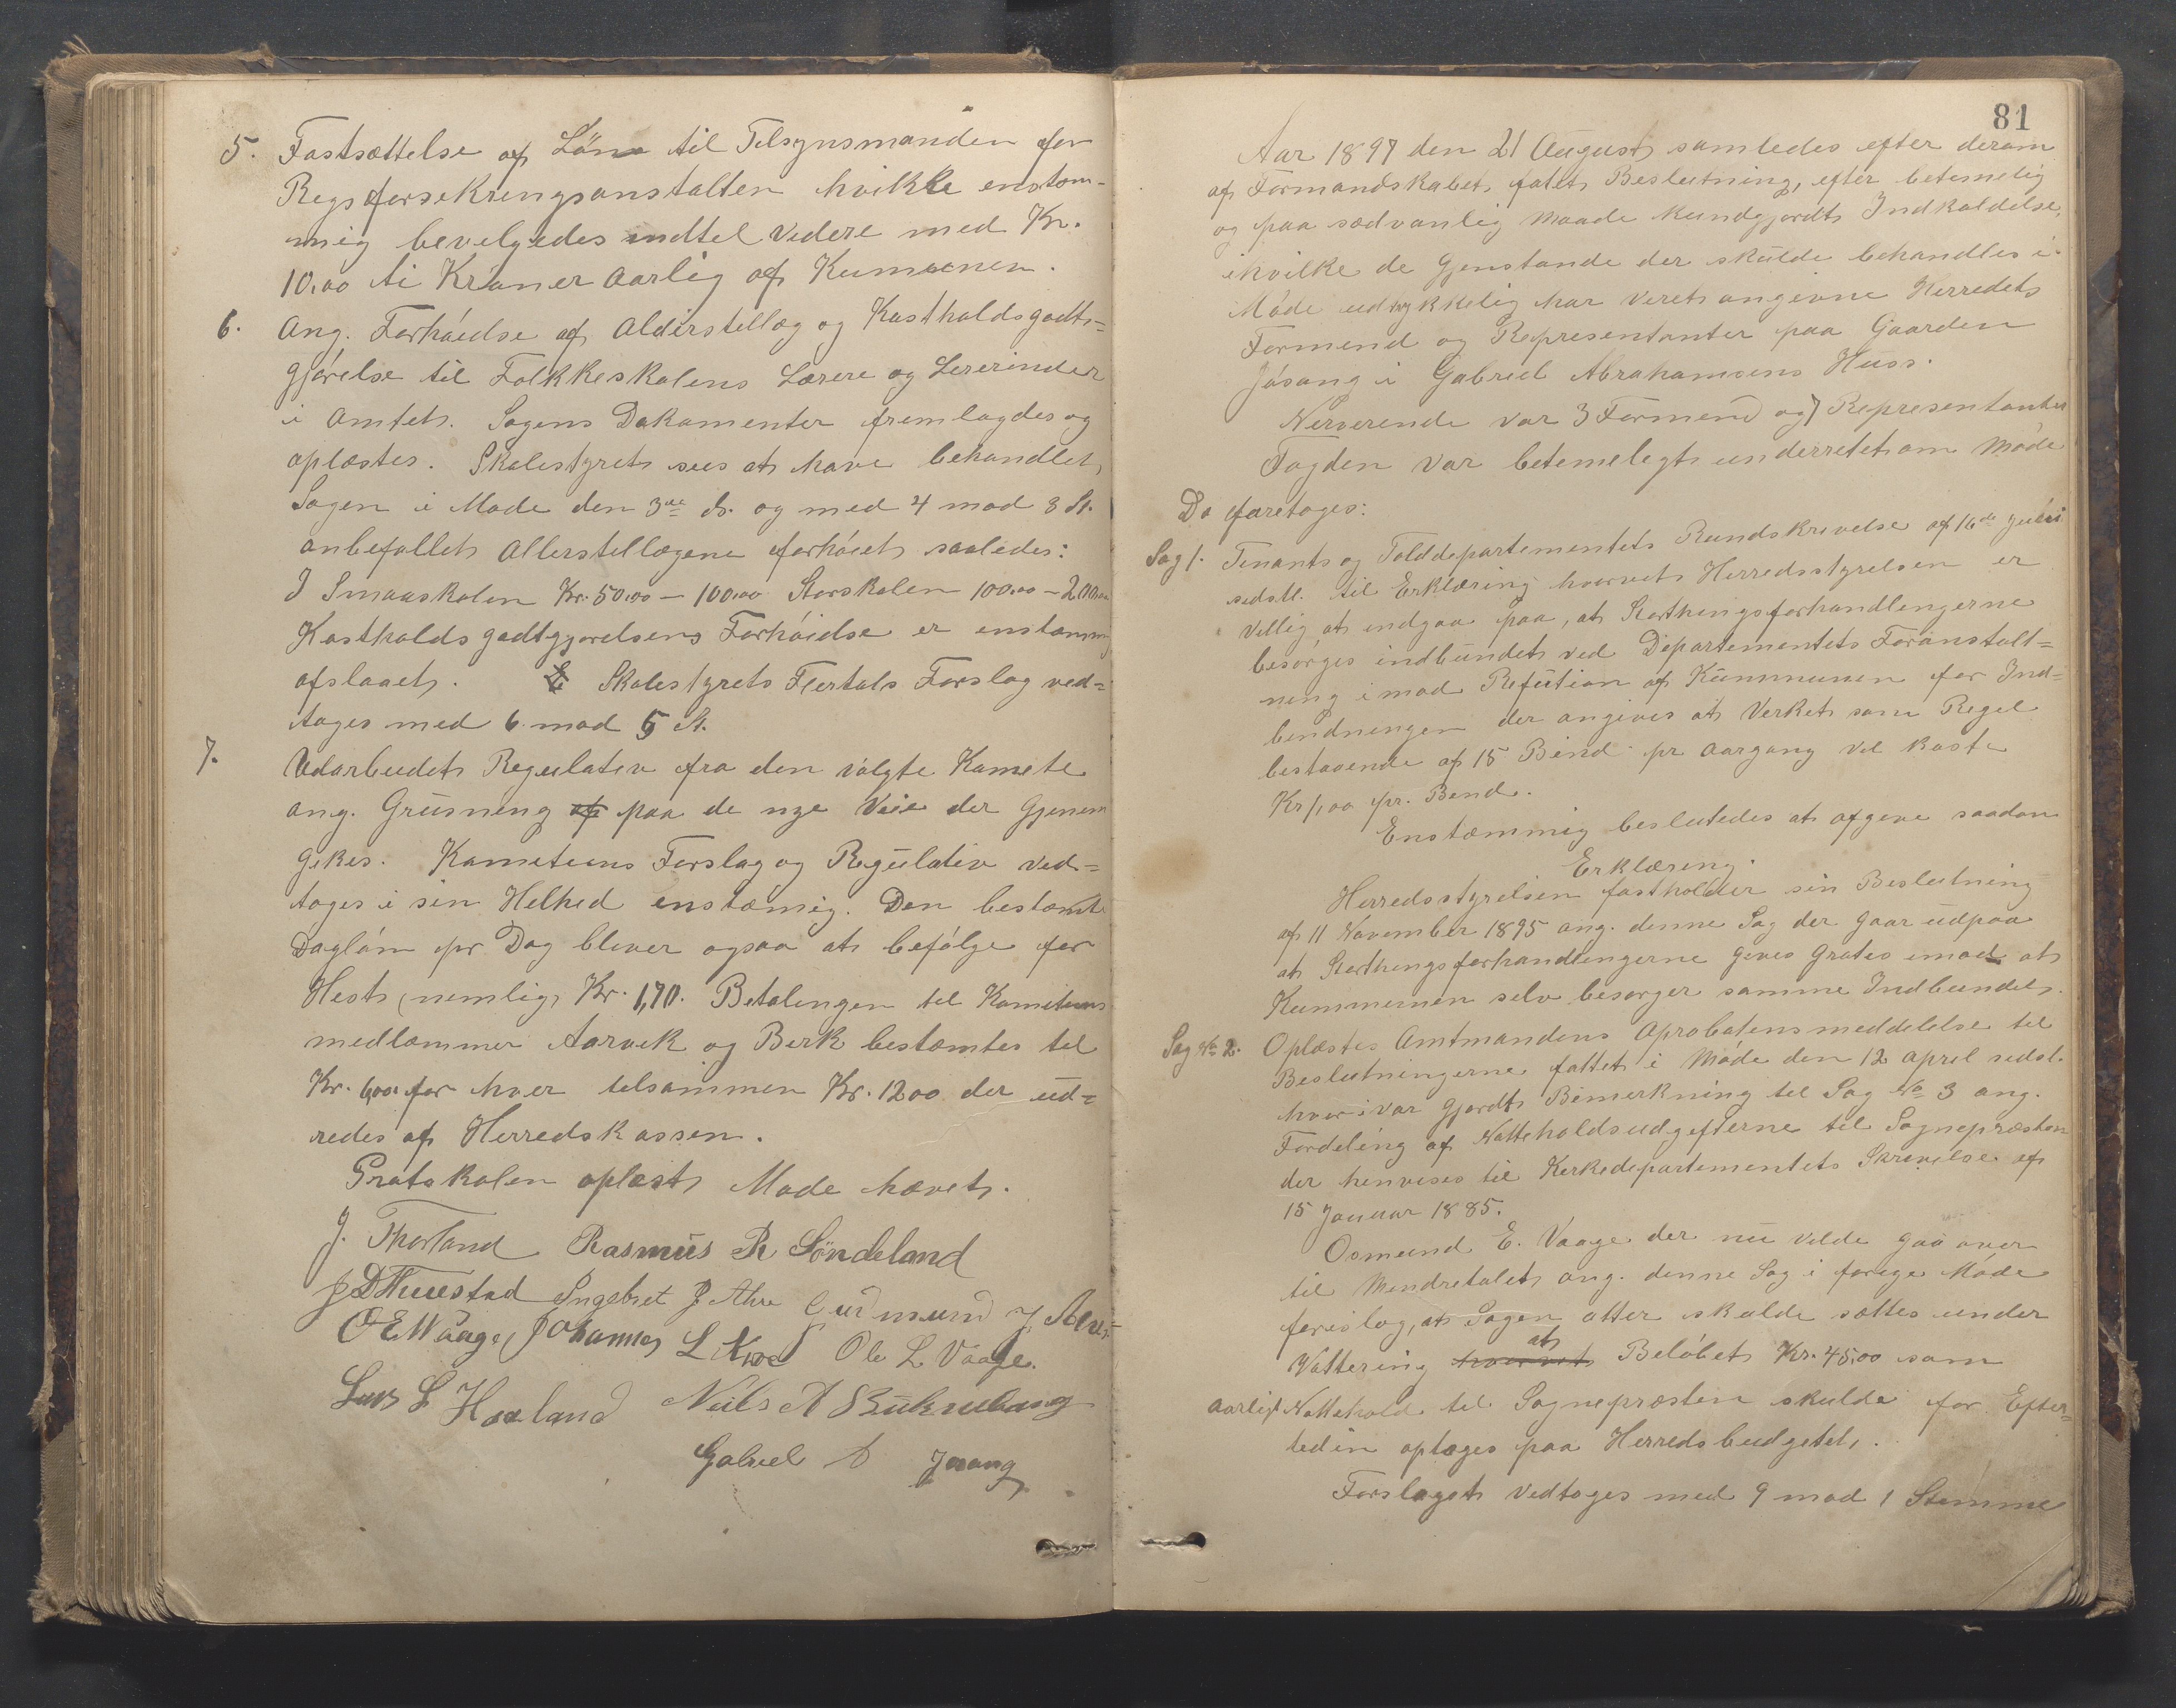 5. Fastsættelse af Løn til Tilsynsmanden for
Regsforsekringsanstalten hvikke enstem-
mig bevelgedes indtel videre med Kr.
10,00 ti Kroner aarlig af Kumunen.
6. Ang. Forhøielse af Alderstellæg og Kostholdsgodt-
gjørelse til Folkkeskolens Lærere og Lererinder
i Amtet. Sagens Dokumenter fremlagdes og
oplæstes. Skolestyret sees at have behandlet
Sagen i Møde den 3die ds. og med 4 mod 3 St.
anbefallet Allerstellægene forhøiet saaledes:
I Smaaskolen Kr. 50,00 – 100,00 Storskolen 100,00 – 200,00
Kostholdsgodtgjørelsens Forhøidse er enstemmig
afslaaet. Skolestyrets Flertals Forslag ved-
tages med 6 mod 5 St.
7. Udarbeidet Regulativ fra den valgte Komete
ang. Grusning af paa de nye Veie der Gjenem
gikes. Kometeens Forslag og Regulativ ved-
tages i sin Helhed enstemig. Den bestemte
Dagløn pr Dag bliver ogsaa at befølge for
Hest, nemlig Kr. 1,70. Betalingen til Kometeens
medlemmer Aarvik og Berk bestemtes til
Kr. 6,00 for hver tilsammen Kr. 12 00 der ud-
redes af Herredskassen.
Protokolen oplæst Møde hævet.
J. Thorland Rasmus R Søndeland
J D Thuestad Ingebret J Ahre Gudmund J
O E Waage Johannes L Ole L Vaage.
Lars L Haaland Niels A
Gabriel A Jøsang
81
Aar 1897 den 21 August samledes efter derom
af Formandskabet fatet Beslutning, efter betemelig
og paa sædvanlig Maade kundgjordt Indkaldelse,
ihvilke de Gjenstande der skulde behandles i
Møde udtrykkelig har veret angivne Herredets
Formend og Representanter paa Gaarden
Jøsang i Gabriel Abrahamsens Huss.
Nerverende var 3 Formend og 7 Representanter
Fogden var betemeligt underrettet om Møde
Da foretoges:
Sag 1. Finants og Tolddepartementets Rundskrivelse af 16de Juni
sidstl. til Erklæring hvorvit Herredsstyrelsen er
Villig at indgaa paa, at Storthingsforhandlingerne
besørges indbundet ved Departementets Foranstalt-
ning imod Refution af Kummunen for Ind-
bindningen der angives at Verket som Regel
bestaaende af 15 Bind pr Aargang vil koste
Kr 1,00 pr. Bend.
Enstemmig besluttedes at afgive saadan
Erklæring.
Herredsstyrelsen fastholder sin Beslutning
af 11 November 1895 ang. denne Sag der gaar udpaa
at Storthingsforhandlingerne gives Gratis imod at
Kummunen selv besørger samme Indbundet.
Sag No 2. Oplæstes Amtmandens Aprobatonsmeddelelse til
Beslutningerne fattet i Møde den 12 April sidstl.
hvori var gjordt Bemerkning til Sag No 3 ang.
Fordeling af Natteholdsudgefterne til Sognepræsten
der henvises til Kerkedepartementets Skrivelse af
15 Januar 1885.
Osmund E. Vaage der nu vilde gaa over
til Mindretalet ang. denne Sag i forige Møde
foreslog, at Sagen atter skulde sættes under
Vattering hvorvit at Beløbet Kr. 45,00 som
aarligt Nattehold til Sognepræsten skulde for Efter-
tiden optages paa Herredsbudgetet.
Forslaget Vedtoges med 9 mod 1 Stemme